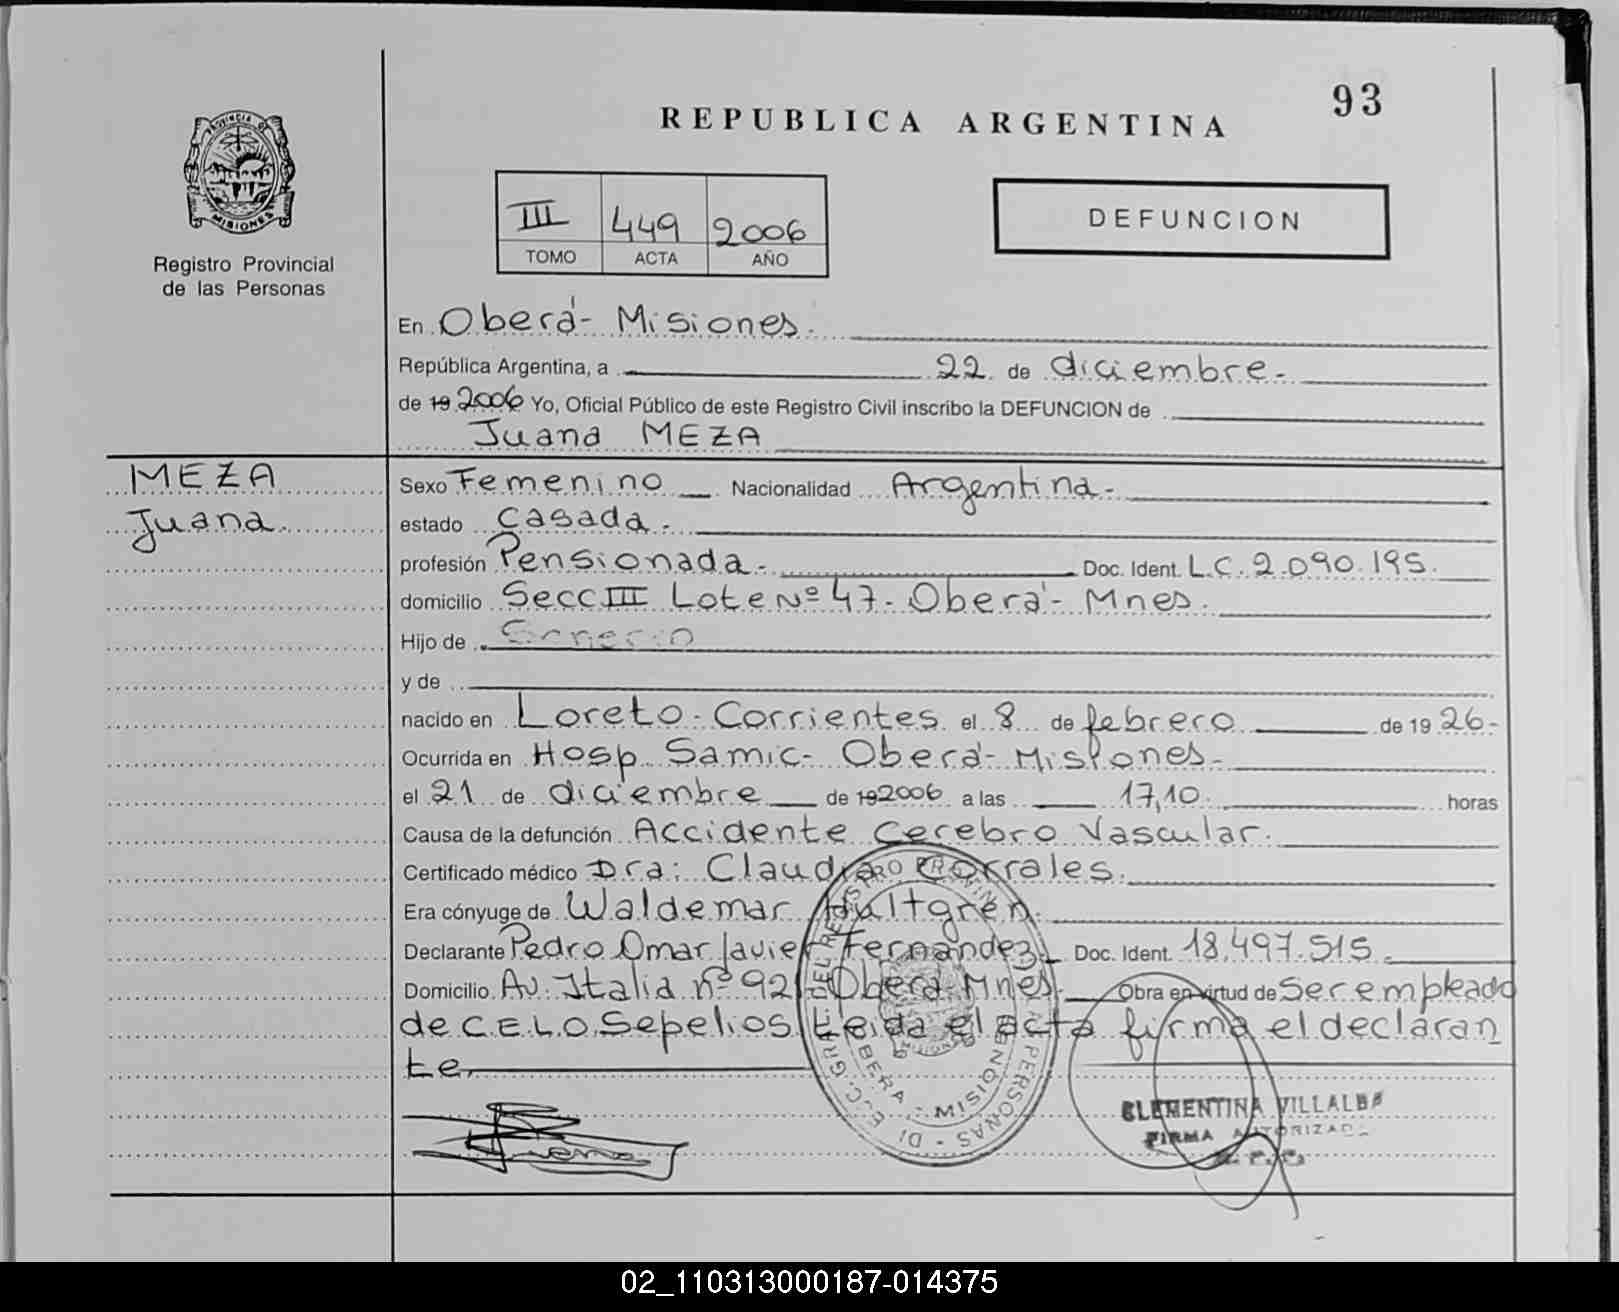 93
REPUBLICA ARGENTINA
PROVINCIA DE
MISIONES
Registro Provincial
de las Personas
III 449 2006
TOMO ACTA AÑO
DEFUNCION
En Oberá- Misiones.
República Argentina, a 22 de diciembre-
de 19 2006 Yo, Oficial Público de este Registro Civil inscribo la DEFUNCION de
Juana MEZA
MEZA
Juana
Sexo Femenino Nacionalidad Argentina-
estado Casada-
profesión Pensionada- Doc. Ident. L.C. 2.090.195.
domicilio Secc III Lote Nº 47- Oberá- Mnes.
Hijo de
y de
nacido en Loreto- Corrientes el 8 de febrero de 19 26-
Ocurrida en Hosp. Samic- Oberá- Misiones-
el 21 de diciembre de 19 2006 a las 17,10 horas
Causa de la defunción Accidente Cerebro Vascular.
Certificado médico Dra: Claudia Corrales.
Era cónyuge de Waldemar Hultgren.
Declarante Pedro Omar Javier Fernández Doc. Ident. 18.497.515
Domicilio Av. Italia nº 92 Oberá- Mnes. Obra en virtud de Ser empleado
de C.E.L.O. Sepelios. Leida el acta firma el declaran
te.
OBERA - MISIONES
CLEMENTINA VILLALBA
FIRMA AUTORIZADA
02_110313000187-014375